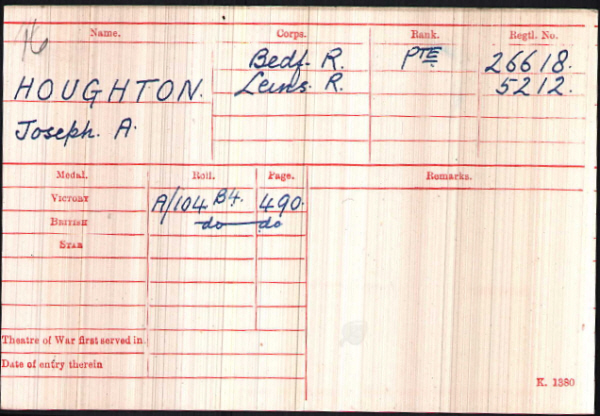 16
Name. Corps. Rank. Regtl. No.
Bedf. R. PTE 26618.
HOUGHTON. Leins. R. 5212.
Joseph. A.
Medal. Roll. Page. Remarks.
VICTORY A/104 B4. 490.
BRITISH do do
STAR
Theatre of War first served in
Date of entry therein
K. 1380